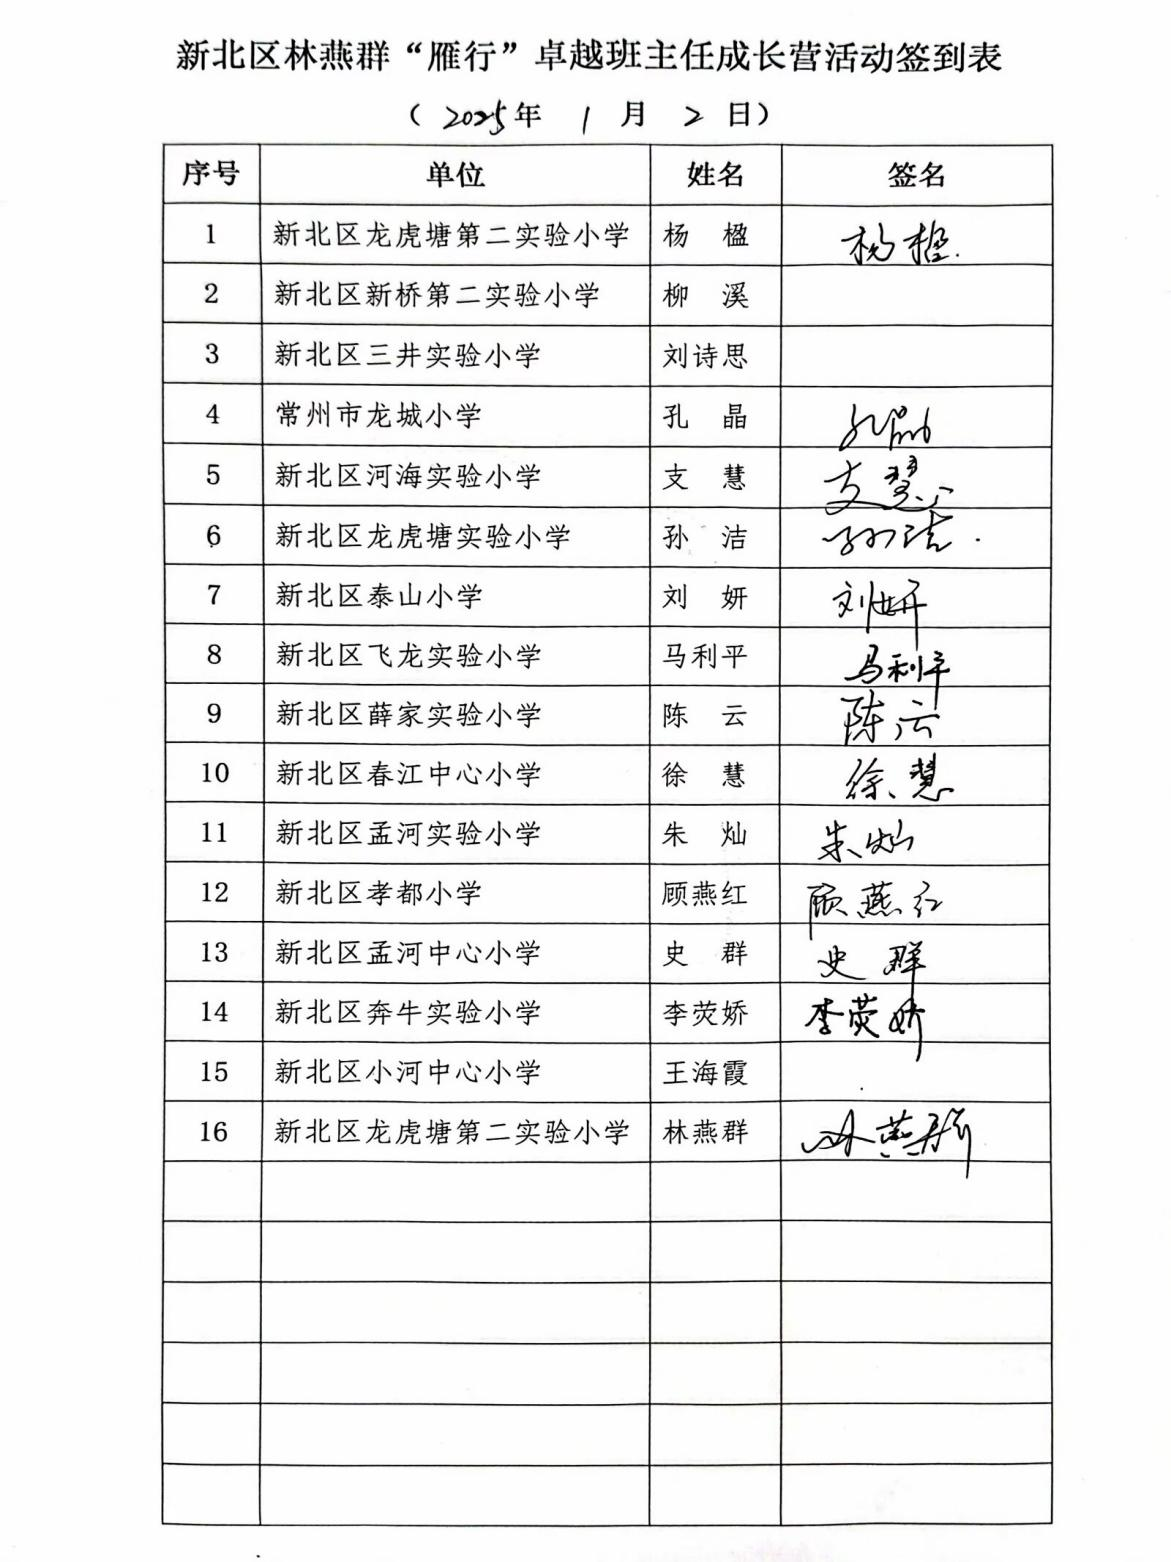 新北区林燕群“雁行”卓越班主任成长营活动签到表
（2025年 1 月 2 日）
序号 单位 姓名 签名
1 新北区龙虎塘第二实验小学 杨 楹 杨楹.
2 新北区新桥第二实验小学 柳 溪
3 新北区三井实验小学 刘诗思
4 常州市龙城小学 孔 晶 孔晶
5 新北区河海实验小学 支 慧 支慧
6 新北区龙虎塘实验小学 孙 洁 孙洁.
7 新北区泰山小学 刘 妍 刘妍
8 新北区飞龙实验小学 马利平 马利平
9 新北区薛家实验小学 陈 云 陈云
10 新北区春江中心小学 徐 慧 徐慧
11 新北区孟河实验小学 朱 灿 朱灿
12 新北区孝都小学 顾燕红 顾燕红
13 新北区孟河中心小学 史 群 史群
14 新北区奔牛实验小学 李荧娇 李荧娇
15 新北区小河中心小学 王海霞
16 新北区龙虎塘第二实验小学 林燕群 林燕群